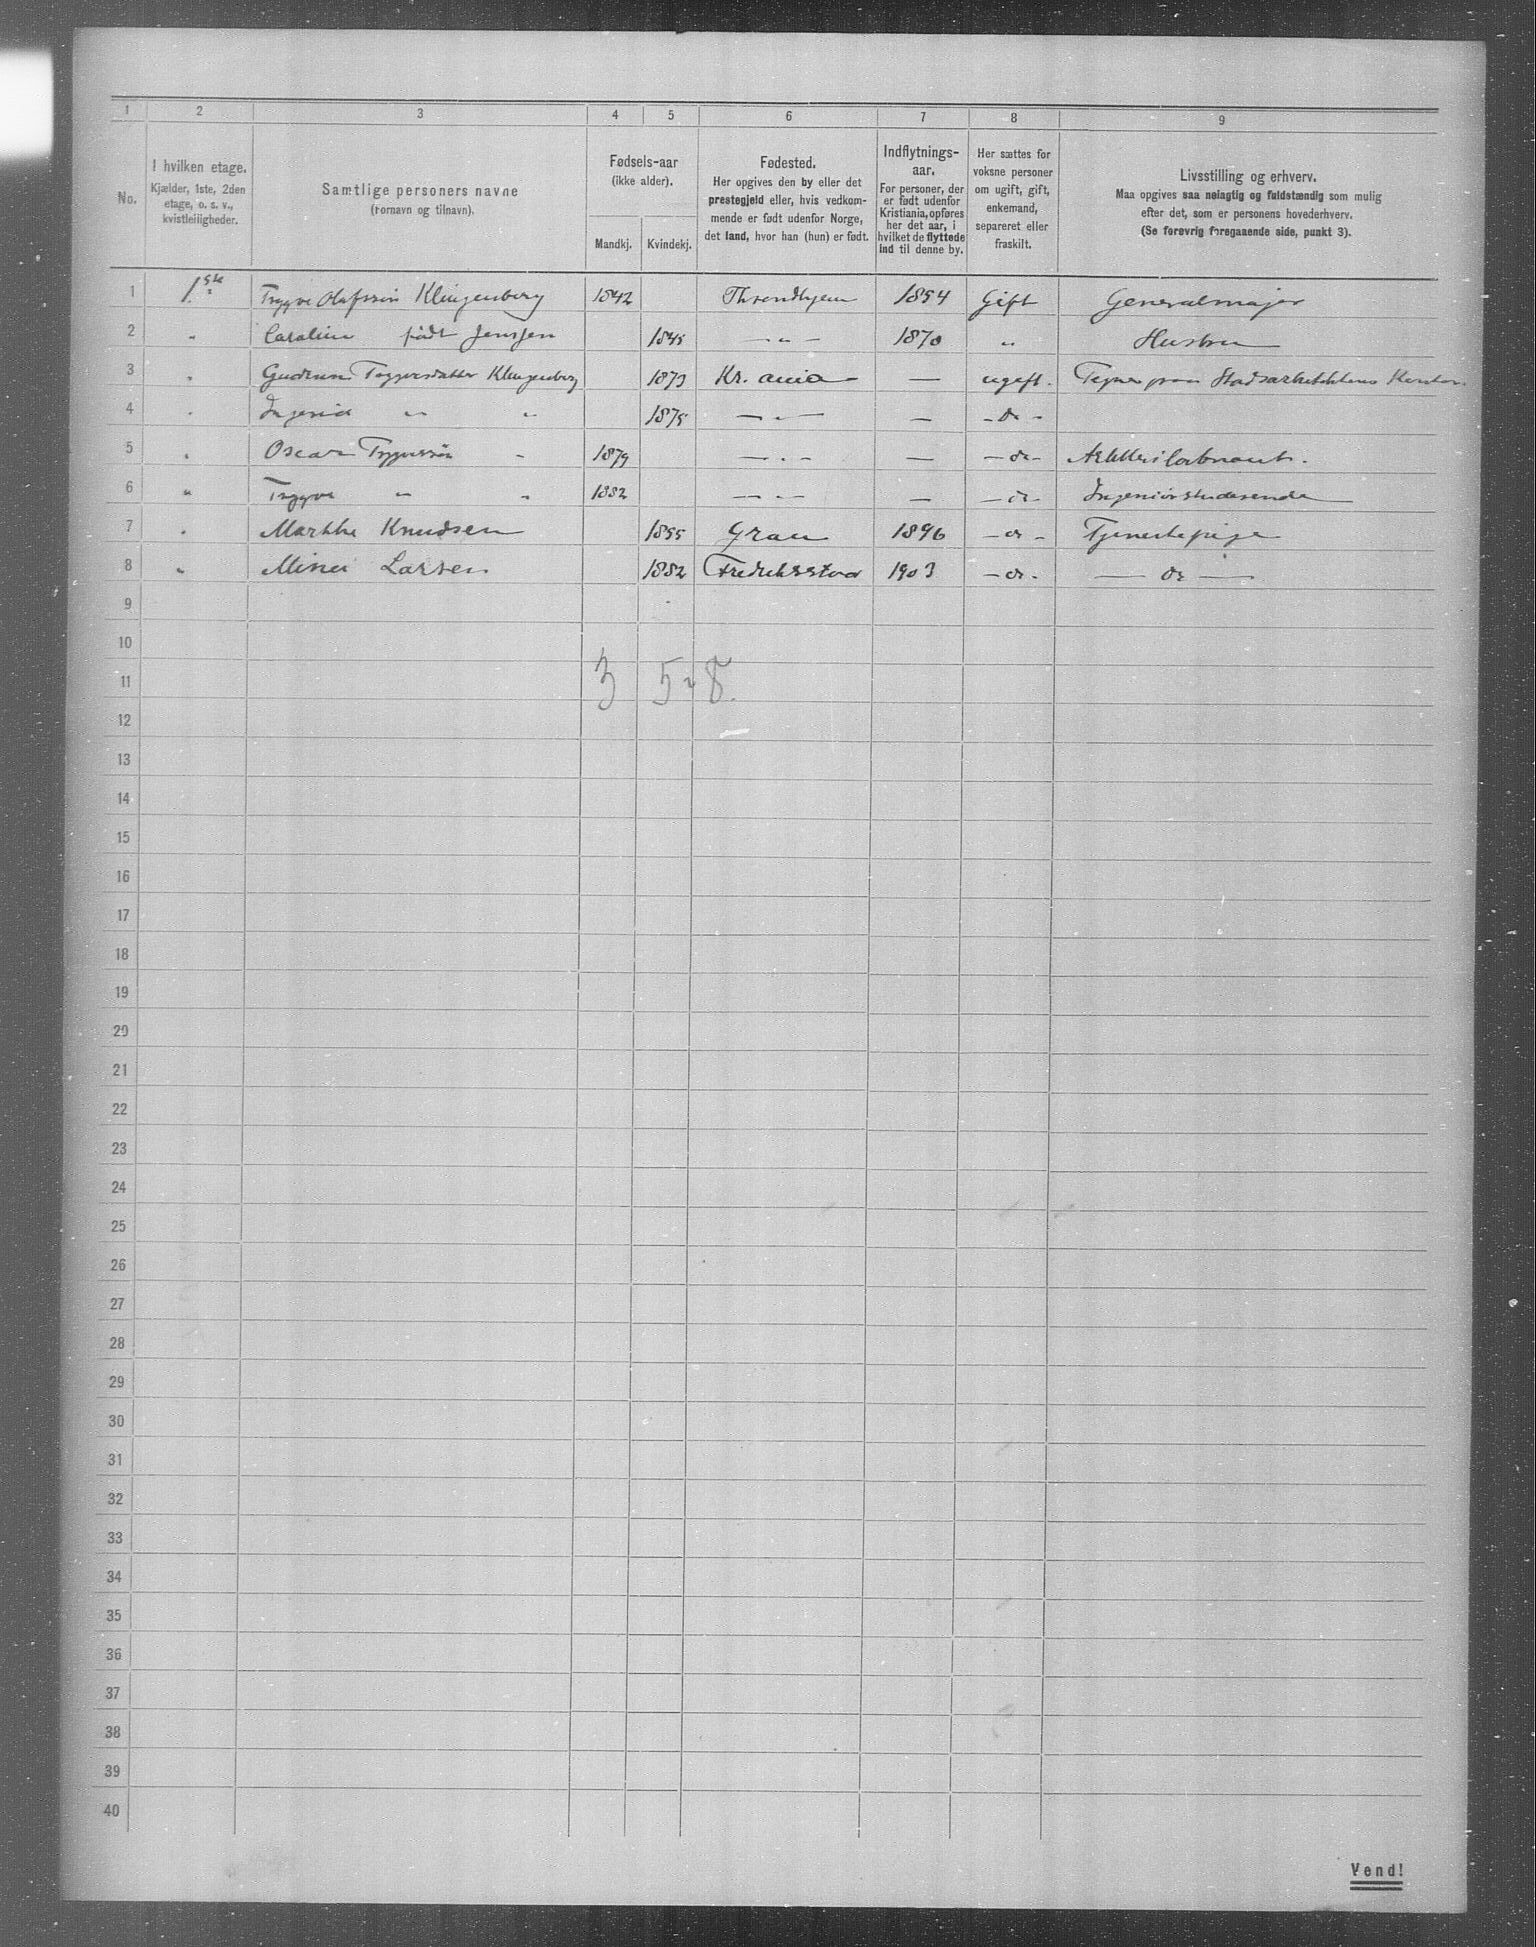 1 2 3 4 5 6 7 8 9
No.
I hvilken etage.
Kjælder, 1ste, 2den
etage, o. s. v.,
kvistleiligheder.
Samtlige personers navne
(fornavn og tilnavn).
Fødsels-aar
(ikke alder).
Mandkj. Kvindekj.
Fødested.
Her opgives den by eller det
prestegjeld eller, hvis vedkom-
mende er født udenfor Norge,
det land, hvor han (hun) er født.
Indflytnings-
aar.
For personer, der
er født udenfor
Kristiania, opføres
her det aar, i
hvilket de flyttede
ind til denne by.
Her sættes for
voksne personer
om ugift, gift,
enkemand,
separeret eller
fraskilt.
Livsstilling og erhverv.
Maa opgives saa nøiagtig og fuldstændig som mulig
efter det, som er personens hovederhverv.
(Se forøvrig foregaaende side, punkt 3).
1 1ste Trygve Olafssøn Klingenberg 1842 Throndhjem 1854 Gift Generalmajor
2 " Caroline født Jenssen 1845 — " — 1870 " Hustru
3 " Gudrun Tryggvesdatter Klingenberg 1873 Kr. ania — — ugift. Tegner paa Stadsarkitektens Kontor.
4 " Ingerid " " 1875 — " — — — do —
5 " Oscar Trygvessøn " 1879 — " — — — do — Artilleriløitnant.
6 " Trygve " " 1882 — " — — — do — Ingeniørstuderende
7 " Marthe Knudsen 1855 Gran 1896 — do — Tjenestepige
8 " Mina Larsen 1882 Fredriksstad 1903 — do — — do —
9
10
11 3 5 8
12
13
14
15
16
17
18
19
20
21
22
23
24
25
26
27
28
29
30
31
32
33
34
35
36
37
38
39
40
Vend!